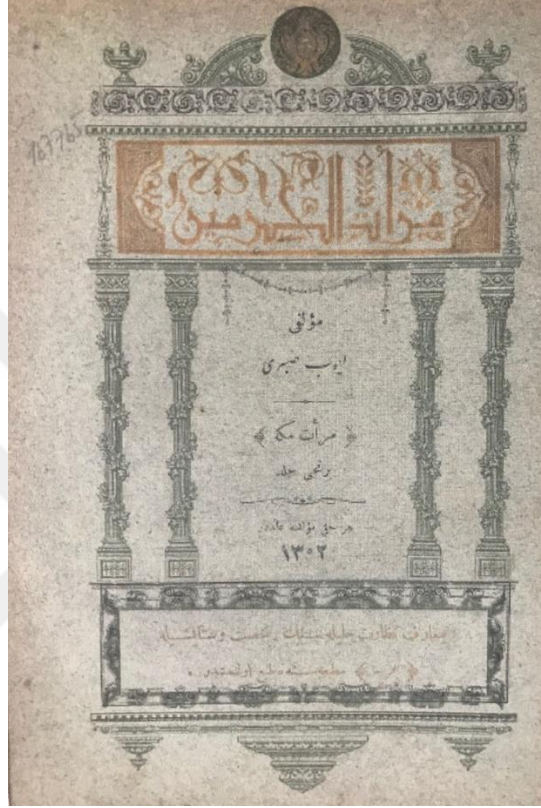 167765
مرآت الحرمين
مؤلفى
ايوب صبرى
﴿ مرأت مكه ﴾
برنجى جلد
هر حقى مؤلفنه عائددر
١٣٠٢
معارف نظارت جليله سنك رخصت و
مطبعه سنده طبع اولنمشدر .